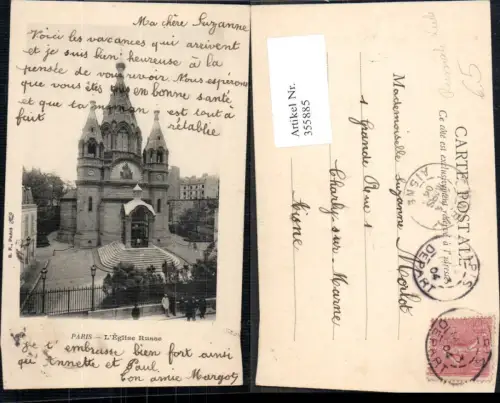 Ma chère Suzanne
Voici les vacances qui arrivent
et je suis bien heureuse à la
pensée de vous revoir. Nous espérons
que vous êtes en bonne santé
et que ta maman est tout à
fait rétablie
B. F., PARIS
PARIS — L'Église Russe
Je t'embrasse bien fort ainsi
qu'Annette et Paul.
Ton amie Margot
Artikel Nr.
355885
CARTE POSTALE
Ce côté est exclusivement réservé à l'adresse
Mademoiselle Suzanne Morlot
1 Grande Rue 1
Charly-sur-Marne
Aisne
AISNE
DEPART
04
DEPART
04